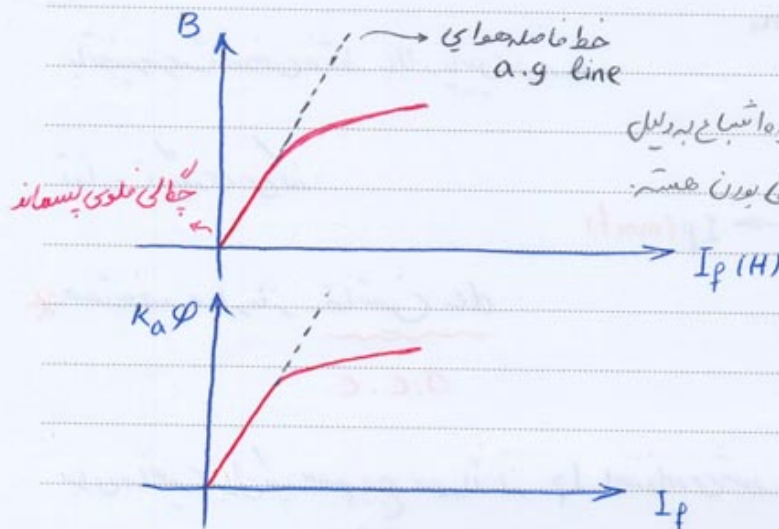 B
خط فاصله هوایی
a.g line
اشباع به دلیل
بودن هسته.
چگالی فلوی پسماند
I_f (H)
K_a φ
I_f